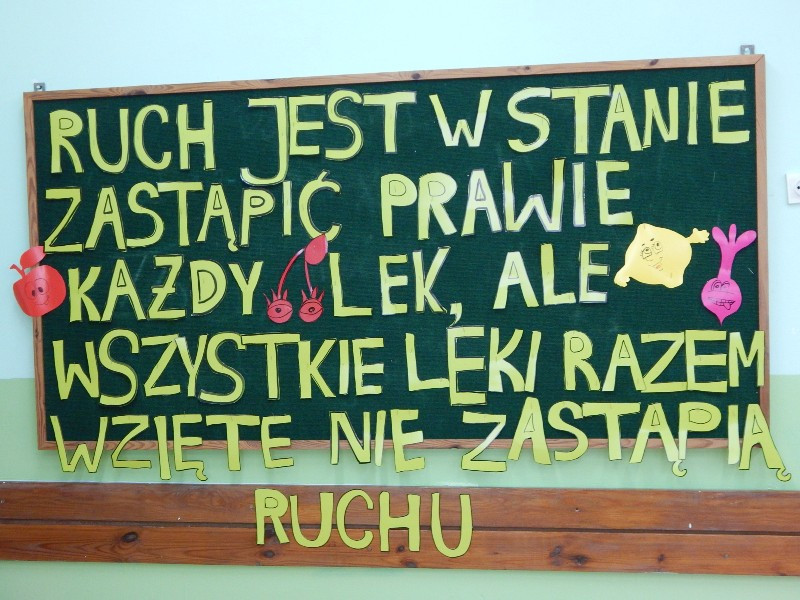 RUCH JEST W STANIE
ZASTĄPIĆ PRAWIE
KAŻDY LEK, ALE
WSZYSTKIE LEKI RAZEM
WZIĘTE NIE ZASTĄPIĄ
RUCHU